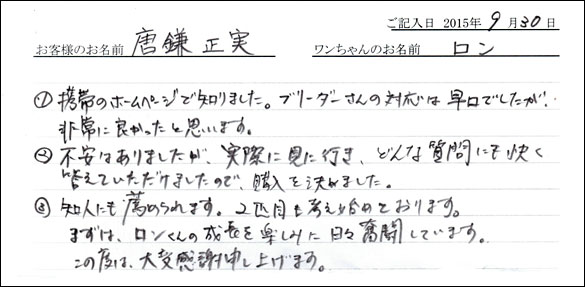 ご記入日 2015年 9月30日
お客様のお名前 唐鎌 正実 ワンちゃんのお名前 ロン
① 携帯のホームページで知りました。ブリーダーさんの対応は早口でしたが、
非常に良かったと思います。
② 不安はありましたが、実際に見に行き、どんな質問にも快く
答えていただけましたので、購入を決めました。
③ 知人にも薦められます。2匹目も考え始めております。
まずは、ロンくんの成長を楽しみに日々奮闘しています。
この度は、大変感謝申し上げます。